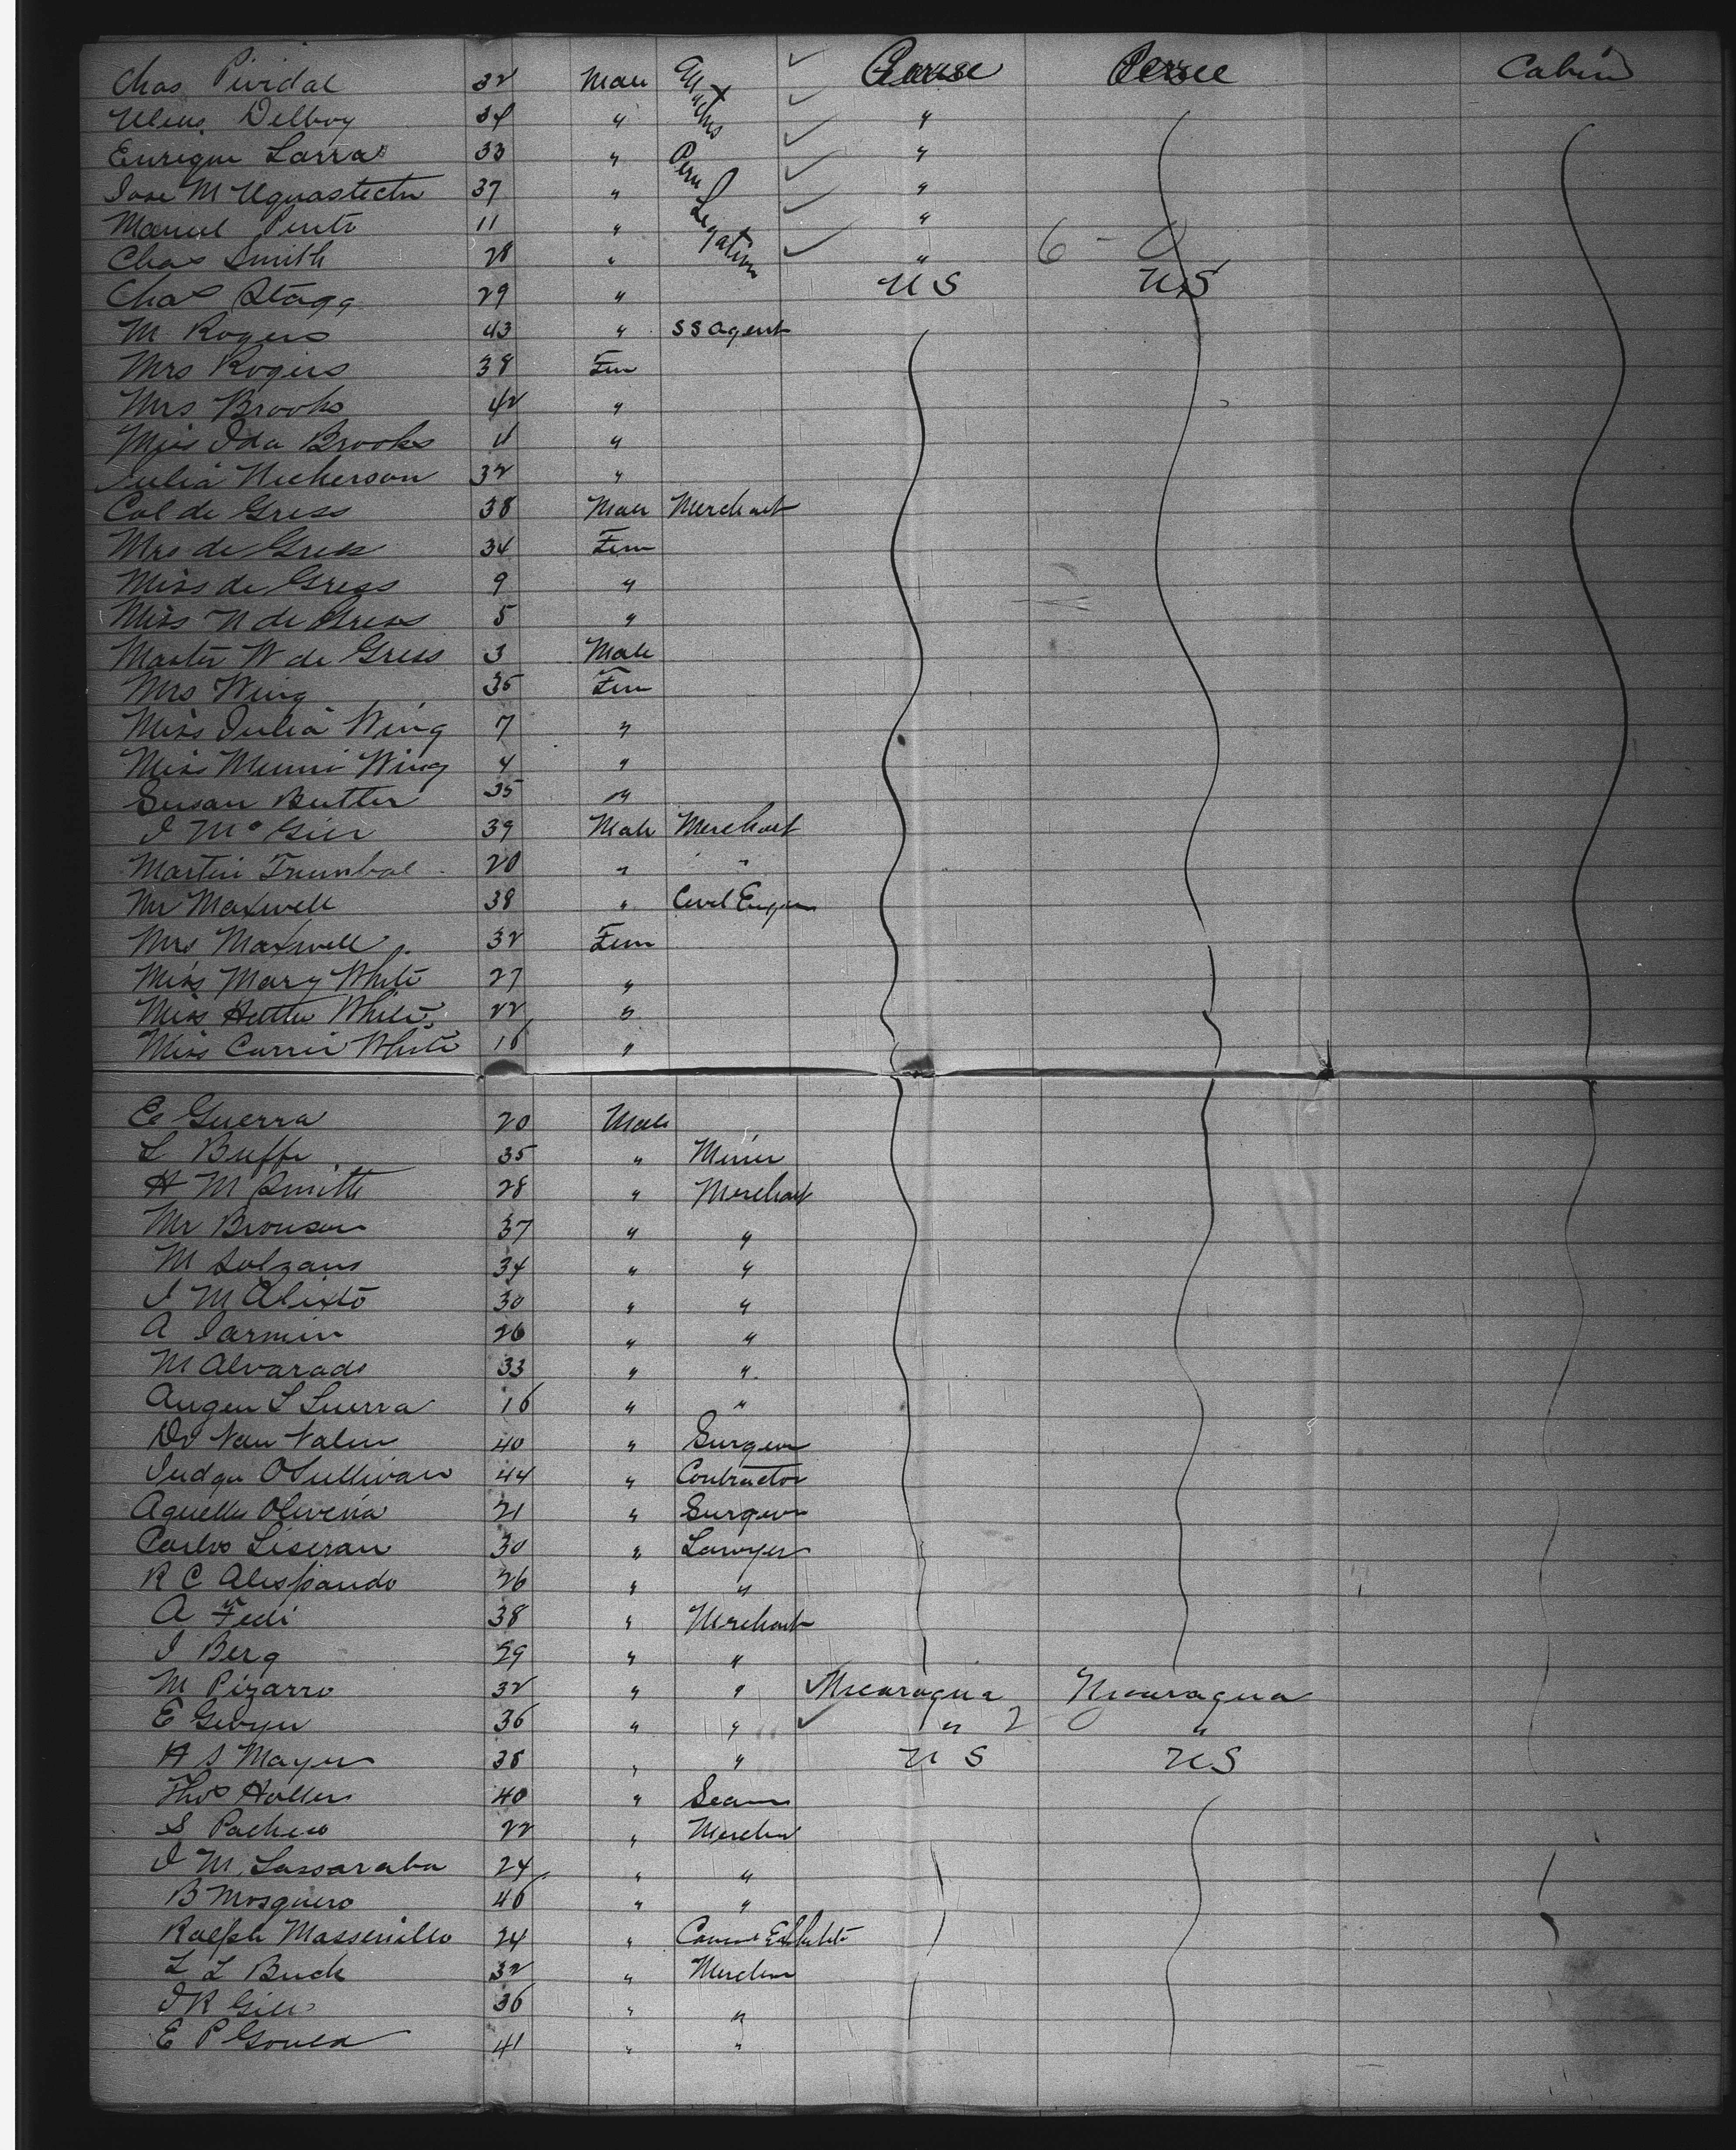 Chas Pividal 32 Male Attachés Peru Legation Peru Cabin
Delboy 34 " "
Enrique Larra 33 " "
Jose M 37 " "
Manuel 11 " "
Chas Smith 28 " " 6 -
Chas Stagg 29 " U S U S
M Rogers 43 " S S Agent
Mrs Rogers 38 Fem
Mrs Brooks 42 "
Miss Ida Brooks 11 "
Julia Nickerson 32 "
Col de Gress 38 Male Merchant
Mrs de Gress 34 Fem
Miss de Gress 9 "
Miss N de Gress 5 "
Master W de Gress 3 Male
Mrs Wing 35 Fem
Miss Julia Wing 7 "
Miss Minni Wing 4 "
Susan Butler 35 "
J Mc Gier 39 Male Merchant
Martin Trumbal 20 " "
Mr Maxwell 38 " Civil Engin
Mrs Maxwell 32 Fem
Miss Mary White 27 "
Miss Hattie White 22 "
Miss Carrie White 16 "
E Guerra 20 Male
L Buffe 35 " Miner
H M Smith 28 " Merchant
Mr Bronson 37 " "
M Solzano 34 " "
J M 30 " "
A Jarmin 26 " "
M Alvarado 33 " "
16 " "
Dr Van Valin 40 " Surgeon
Judge O Sullivan 44 " Contractor
Oliveria 21 " Surgeon
Carlos Liseran 30 " Lawyer
R C 26 " "
A Fedi 38 " Merchant
J Berg 29 " "
M Pizarro 32 " " Nicaragua Nicaragua
E 36 " " " 2 "
H S Mayer 38 " " U S U S
Thos Hollers 40 " Seam
S Pacheco 22 " Merchn
J M Lassaraba 24 " "
B Mosquero 46 " "
Ralph 24 "
L L Buck 32 " Merchn
J R Gill 36 " "
E P Gould 41 " "